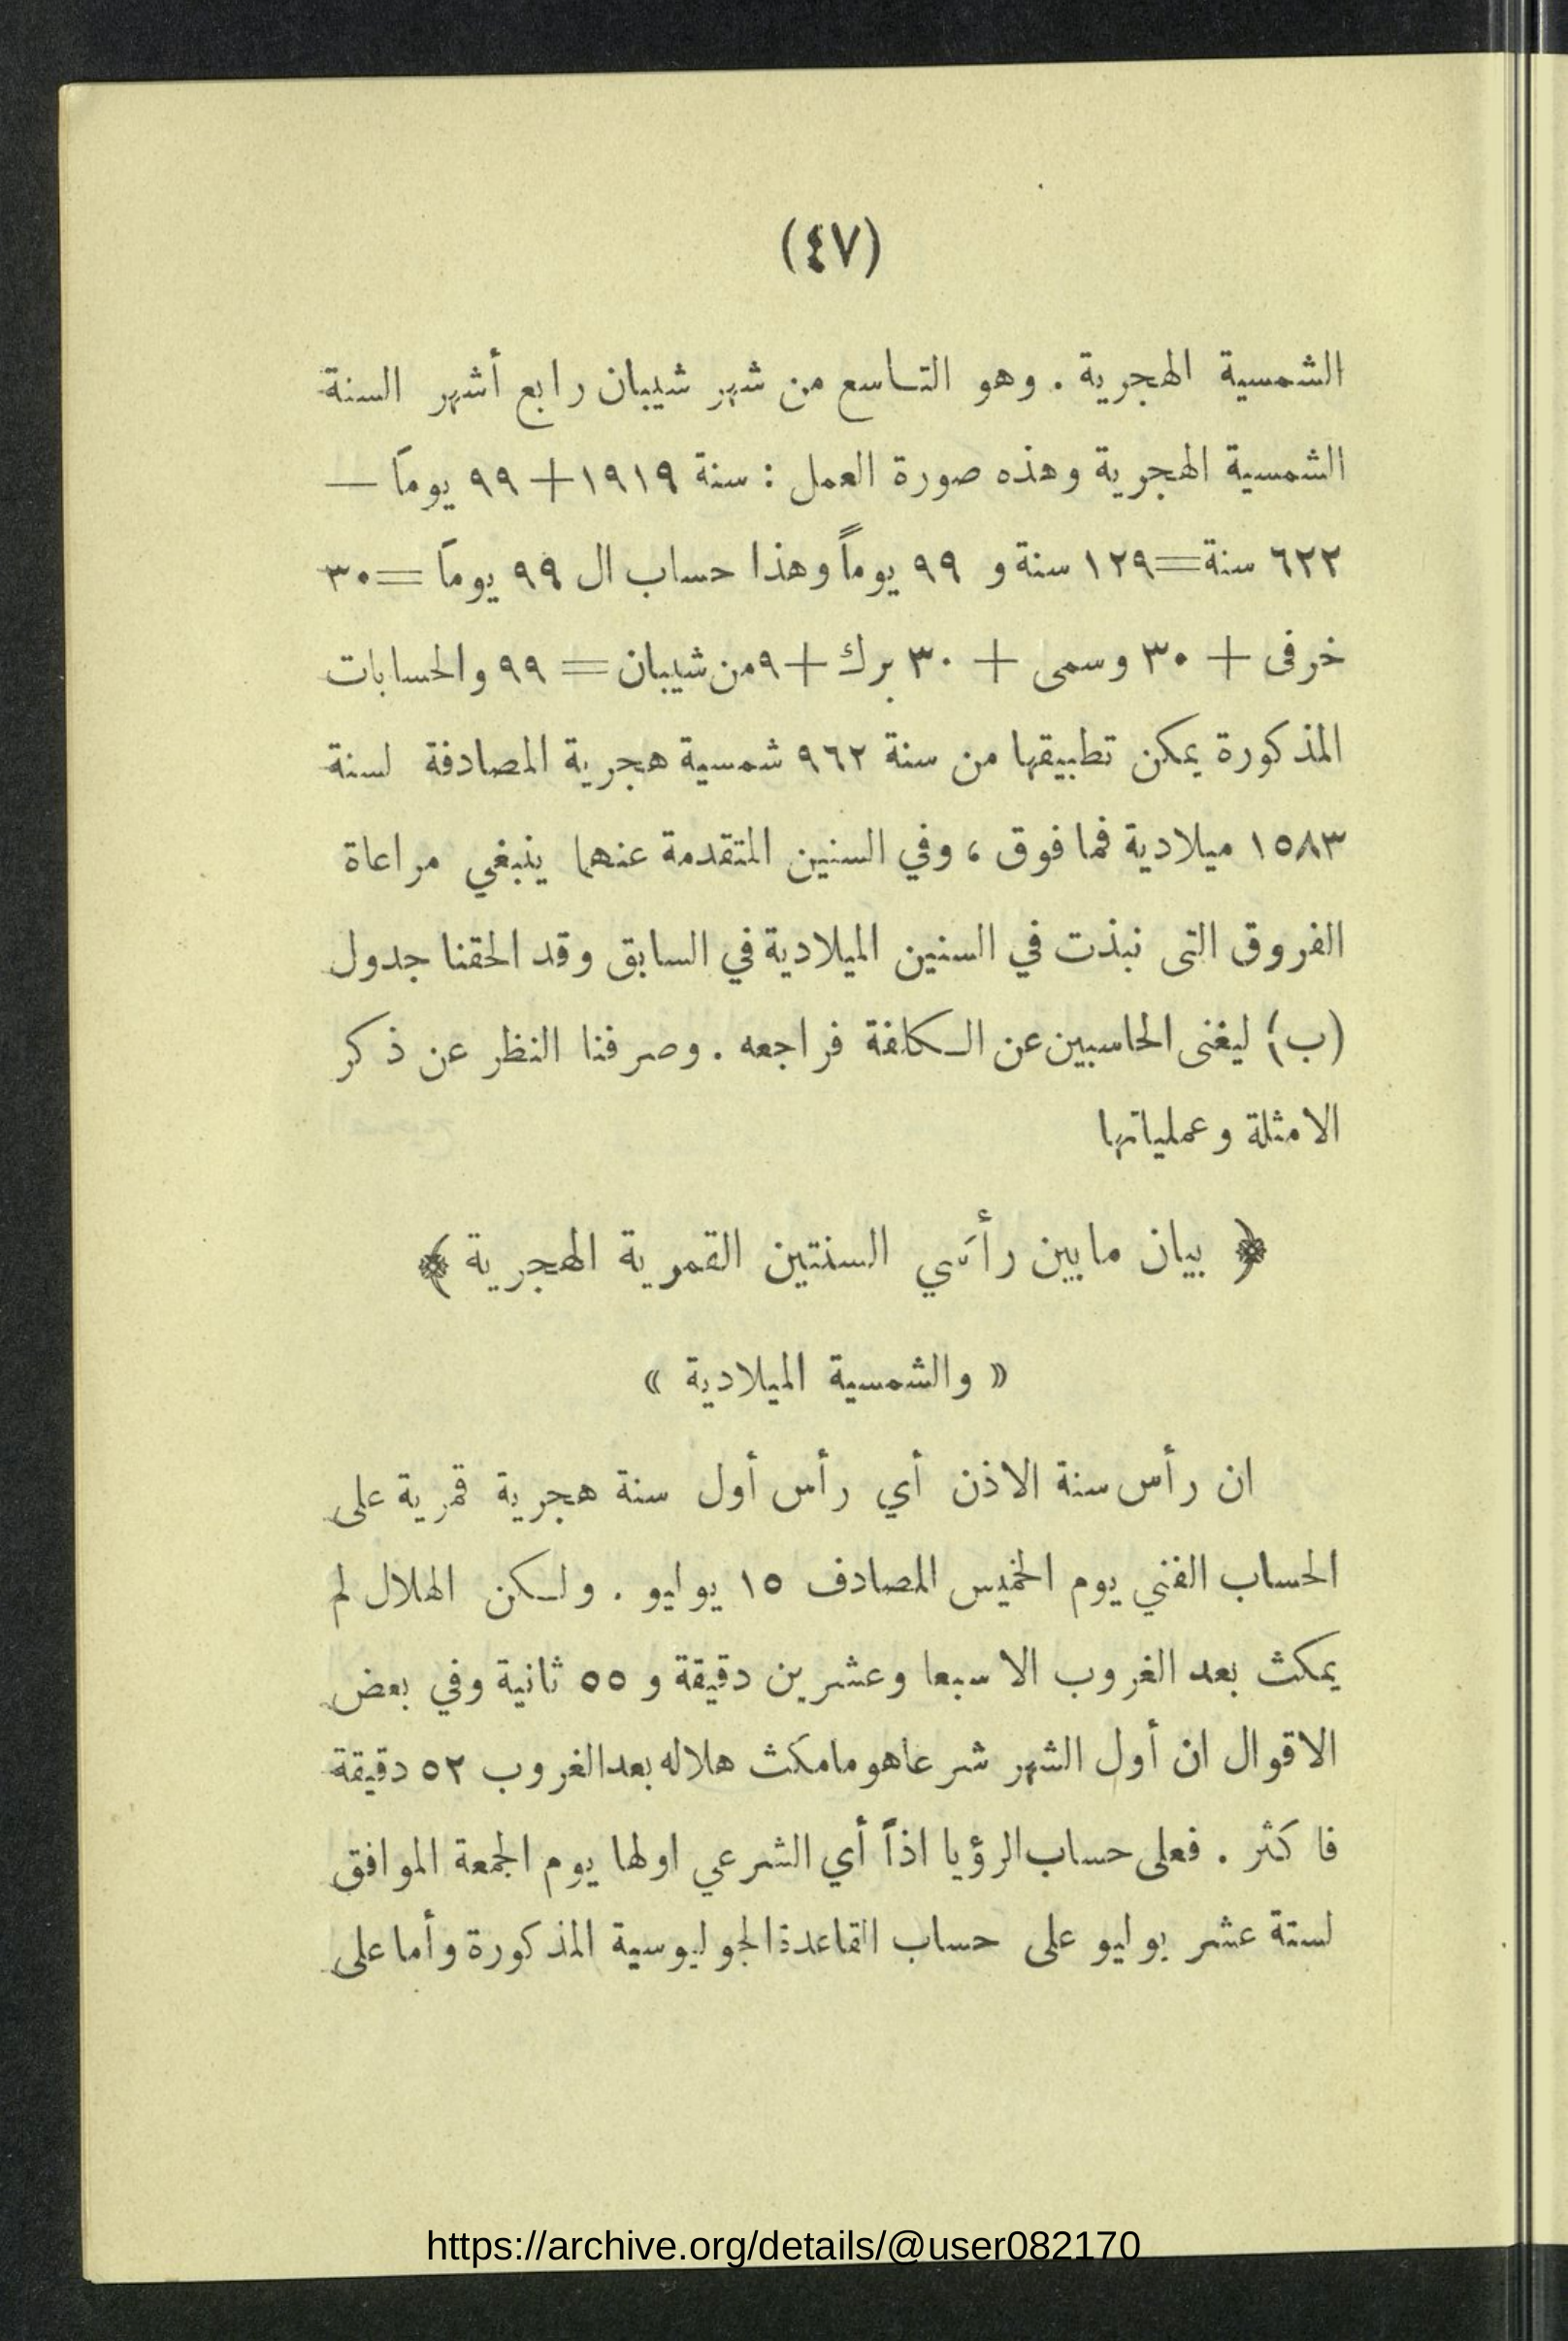 (٤٧)
الشمسية الهجرية . وهو التاسع من شهر شيبان رابع أشهر السنة
الشمسية الهجرية وهذه صورة العمل : سنة ١٩١٩ + ٩٩ يوماً —
٦٢٢ سنة = ١٢٩ سنة و ٩٩ يوماً وهذا حساب ال ٩٩ يوماً = ٣٠
خرفى + ٣٠ وسمى + ٣٠ برك + ٩ من شيبان = ٩٩ والحسابات
المذكورة يمكن تطبيقها من سنة ٩٦٢ شمسية هجرية المصادفة لسنة
١٥٨٣ ميلادية فما فوق ، وفي السنين المتقدمة عنهما ينبغي مراعاة
الفروق التى نبذت في السنين الميلادية في السابق وقد الحقنا جدول
(ب) ليغنى الحاسبين عن الكلفة فراجعه . وصرفنا النظر عن ذكر
الامثلة وعملياتها
﴿ بيان مابين رأسَي السنتين القمرية الهجرية ﴾
« والشمسية الميلادية »
ان رأس سنة الاذن أي رأس أول سنة هجرية قمرية على
الحساب الفني يوم الخميس المصادف ١٥ يوليو . ولكن الهلال لم
يمكث بعد الغروب الا سبعا وعشرين دقيقة و ٥٥ ثانية وفي بعض
الاقوال ان أول الشهر شرعا هو مامكث هلاله بعد الغروب ٥٢ دقيقة
فاكثر . فعلى حساب الرؤيا اذاً أي الشرعي اولها يوم الجمعة الموافق
لستة عشر يوليو على حساب القاعدة الجوليوسية المذكورة وأما على
https://archive.org/details/@user082170